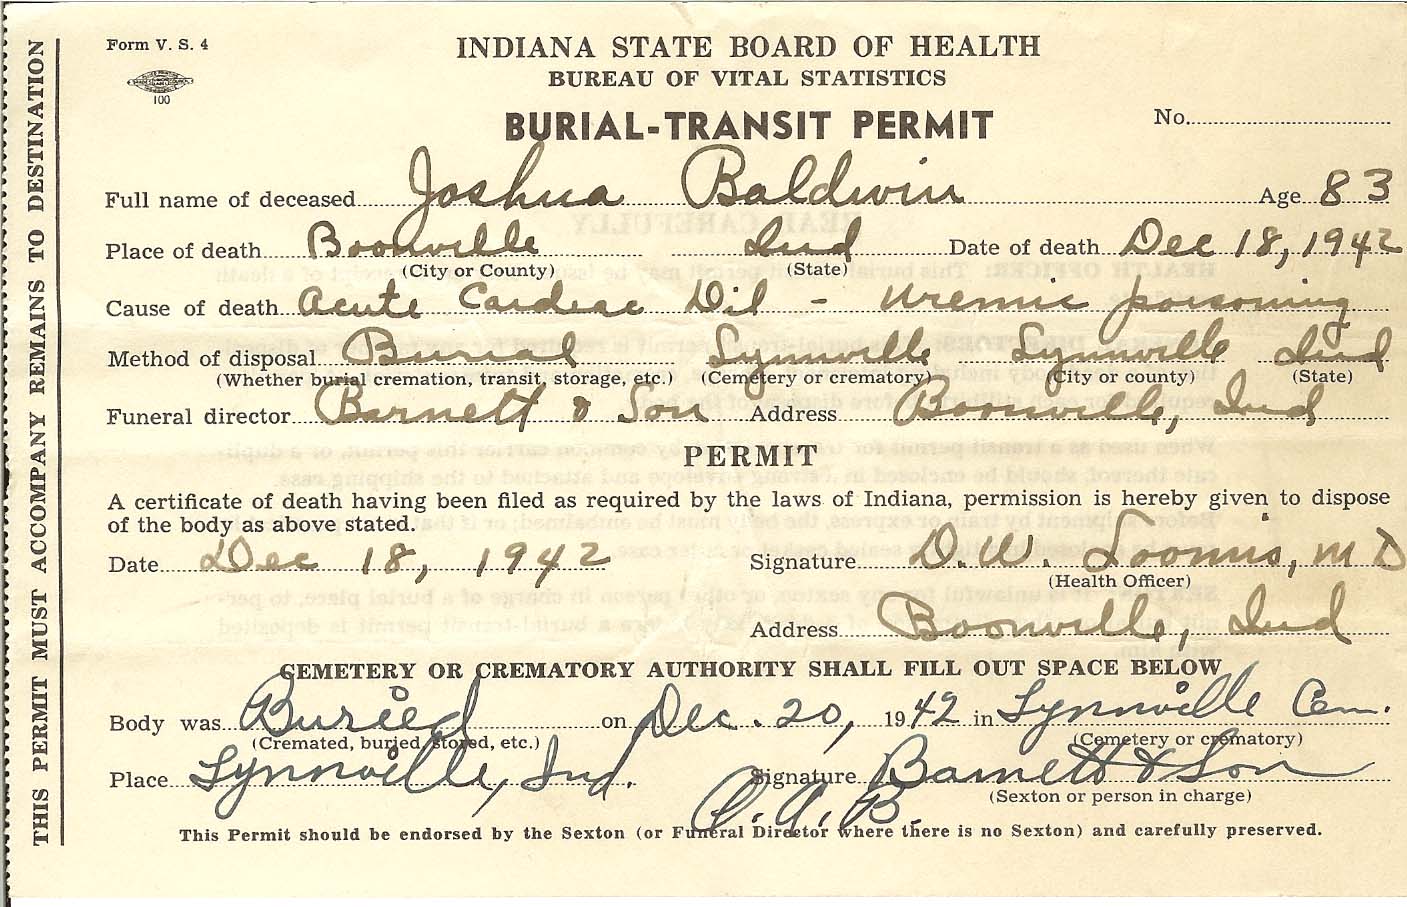 Form V. S. 4
100
INDIANA STATE BOARD OF HEALTH
BUREAU OF VITAL STATISTICS
BURIAL-TRANSIT PERMIT
No.
Full name of deceased Joshua Baldwin Age 83
Place of death Boonville Ind Date of death Dec 18, 1942
(City or County) (State)
Cause of death Acute Cardiac Dil - Uremic poisoning
Method of disposal Burial Lynnville Lynnville Ind
(Whether burial cremation, transit, storage, etc.) (Cemetery or crematory) (City or county) (State)
Funeral director Barnett & Son Address Boonville, Ind
PERMIT
A certificate of death having been filed as required by the laws of Indiana, permission is hereby given to dispose
of the body as above stated.
Date Dec 18, 1942 Signature D.W. Loomis, M D
(Health Officer)
Address Boonville, Ind
CEMETERY OR CREMATORY AUTHORITY SHALL FILL OUT SPACE BELOW
Body was Buried on Dec. 20, 1942 in Lynnville Cem.
(Cremated, buried, stored, etc.) (Cemetery or crematory)
Place Lynnville, Ind. Signature Barnett & Son
(Sexton or person in charge)
C.A.B.
This Permit should be endorsed by the Sexton (or Funeral Director where there is no Sexton) and carefully preserved.
THIS PERMIT MUST ACCOMPANY REMAINS TO DESTINATION